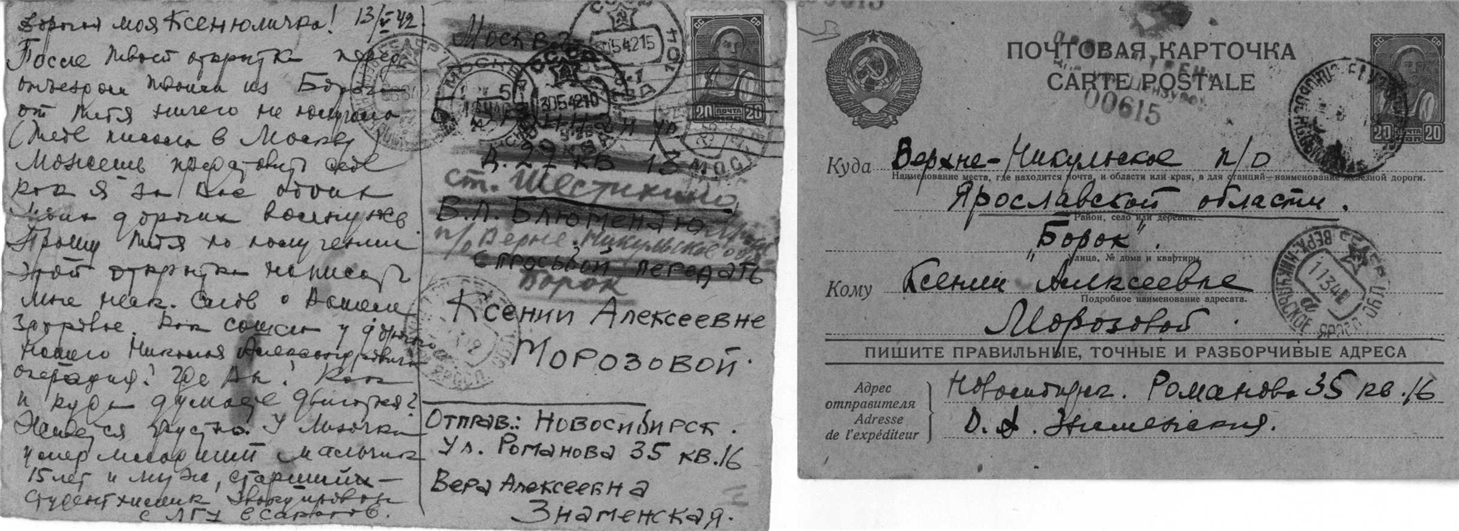 Дорогая моя Ксенюличка! 13/V 42.
После твоей открытки перед
отъездом твоим из Борка
от тебя ничего не получала
(Тебе писала в Москву
Можешь представить себе
как я за вас обоих
моих дорогих волнуюсь.
Прошу тебя по получении
этой открытки написать
мне неск. слов о вашем
здоровье. Как сошла у дорогого
нашего Николая Александровича
операция? Где вы? Как
и куда думаете двигаться?
Живется грустно. У Лизочки
умер младший мальчик
15 лет и муж, старший –
студент химик эвакуирован
с ЛГУ в Саратов.
Москва
20 ПОЧТА 20
Д. 27 кв 13
ст. Шестихино
В.Л. Блюменталь
п/о Верхне-Никульское
с просьбой передать
Борок
Ксении Алексеевне
Морозовой.
Отправ.: Новосибирск.
ул. Романова 35 кв. 16
Вера Алексеевна
Знаменская.
00615
ПОЧТОВАЯ КАРТОЧКА
CARTE POSTALE
00615
20 ПОЧТА 20
Куда Верхне-Никульское п/о
Наименование места, где находится почта, и области или края, а для станций – наименование железной дороги.
Ярославской области.
Район, село или деревня.
"Борок".
Улица, № дома и квартиры.
Кому Ксении Алексеевне
Подробное наименование адресата.
Морозовой.
ПИШИТЕ ПРАВИЛЬНЫЕ, ТОЧНЫЕ И РАЗБОРЧИВЫЕ АДРЕСА
Адрес отправителя
Adresse de l'expéditeur
Новосибирск. Романова 35 кв. 16
В. А. Знаменская.